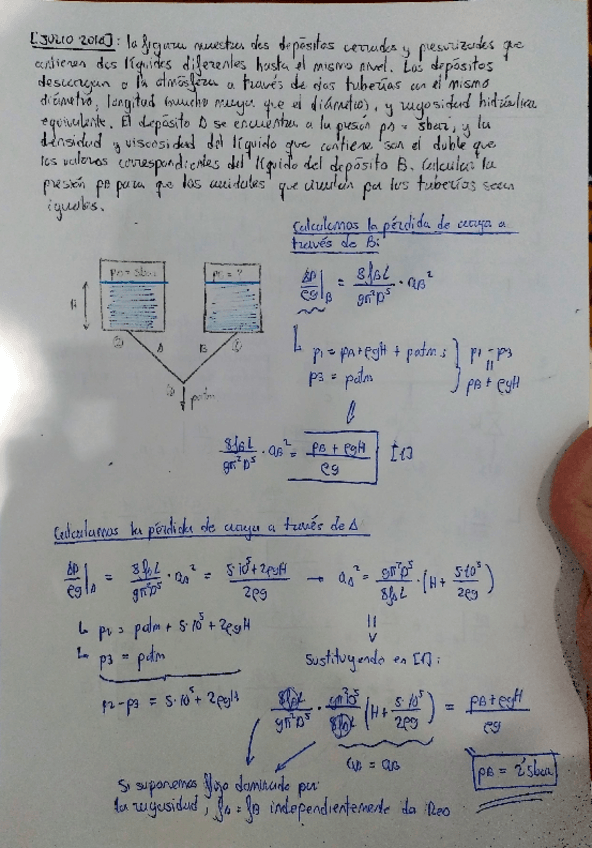 [JULIO 2016]: la figura muestra dos depósitos cerrados y presurizados que
contienen dos líquidos diferentes hasta el mismo nivel. Los depósitos
descargan a la atmósfera a través de dos tuberías con el mismo
diámetro, longitud (mucho mayor que el diámetro), y rugosidad hidráulica
equivalente. El depósito A se encuentra a la presión pA = 5bar, y la
densidad y viscosidad del líquido que contiene son el doble que
los valores correspondientes del líquido del depósito B. Calcular la
presión pB para que los caudales que circulan por las tuberías sean
iguales.
Calculamos la pérdida de carga a
través de B:
ΔP/ρg|B = 8fBL/gπ²D⁵ · QB²
pA = 5bar
pB = ?
H
A
B
② ①
③
patm
p1 = pA + ρgH + patm; } p1 - p3
p3 = patm } pB + ρgH
8fBL/gπ²D⁵ · QB² = pB + ρgH/ρg [1]
Calculamos la pérdida de carga a través de A
ΔP/ρg|A = 8fAL/gπ²D⁵ · QA² = 5·10⁵ + 2ρgH/2ρg → QA² = gπ²D⁵/8fAL · (H + 5·10⁵/2ρg)
p2 = patm + 5·10⁵ + 2ρgH
p3 = patm
Sustituyendo en [1]:
p2 - p3 = 5·10⁵ + 2ρgH
8fBL/gπ²D⁵ · gπ²D⁵/8fAL (H + 5·10⁵/2ρg) = pB + ρgH/ρg
QA = QB
pB = 2'5bar
Si suponemos flujo dominado por
la rugosidad, fA = fB independientemente de Reo